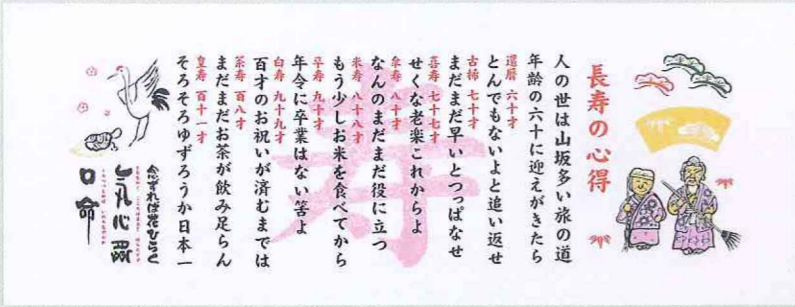 長寿の心得
人の世は山坂多い旅の道
年齢の六十に迎えがきたら
還暦 六十才
とんでもないよと追い返せ
古稀 七十才
まだまだ早いとつっぱなせ
喜寿 七十七才
せくな老楽これからよ
傘寿 八十才
なんのまだまだ役に立つ
米寿 八十八才
もう少しお米を食べてから
卒寿 九十才
年令に卒業はない筈よ
白寿 九十九才
百才のお祝いが済むまでは
茶寿 百八才
まだまだお茶が飲み足らん
皇寿 百十一才
そろそろゆずろうか日本一
寿
念ずれば花ひらく